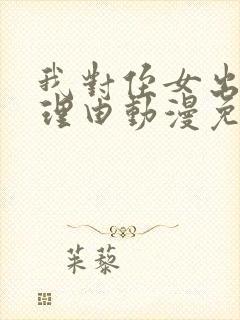 我對侄女出
理由動漫免
茱藜